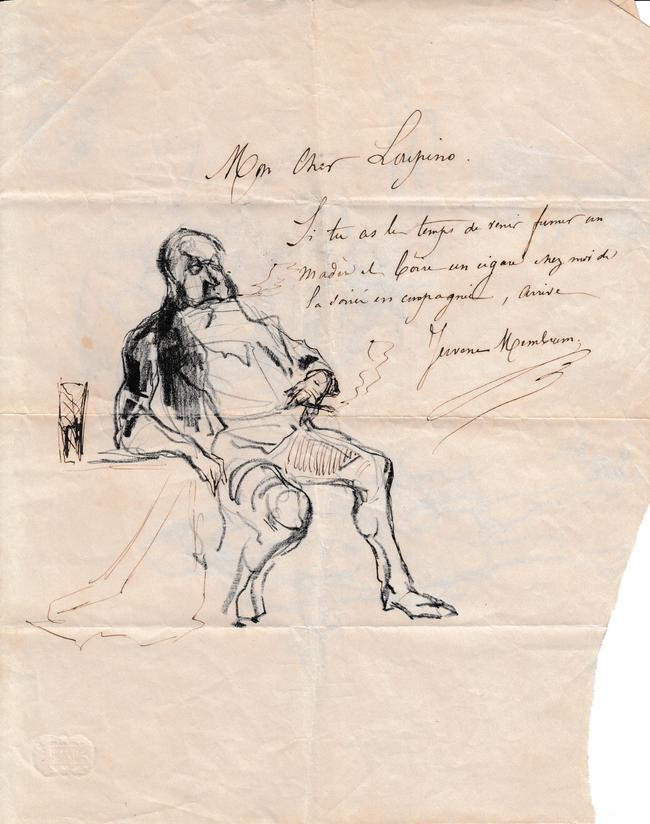 Mon Cher Loupino.
Si tu as le temps de venir fumer un
Madèr et boire un cigare chez moi ds
la soirée en compagnie, arrive